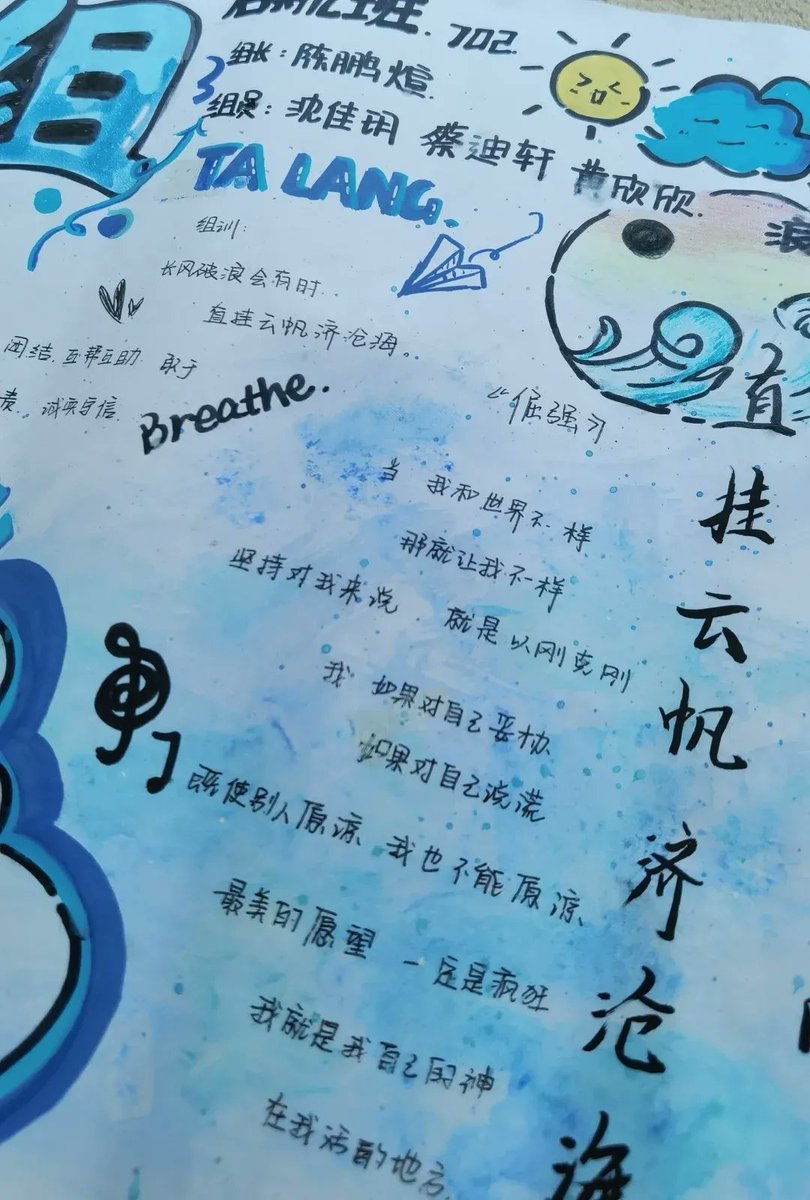 组
班.702.
组长:陈鹏煊.
组员:沈佳玥 蔡迪轩 黄欣欣.
TA LANG.
组训:
长风破浪会有时..
直挂云帆济沧海..
团结.互帮互助 敢于
责.诚实守信.
Breathe.
浪
"倔强"
当 我和世界不一样
那就让我不一样
坚持对我来说 就是以刚克刚
我 如果对自己妥协
如果对自己说谎
既使别人原谅 我也不能原谅
最美的愿望 一定是疯狂
我就是我自己的神
在我活的地方.
直
挂
云
帆
济
沧
海